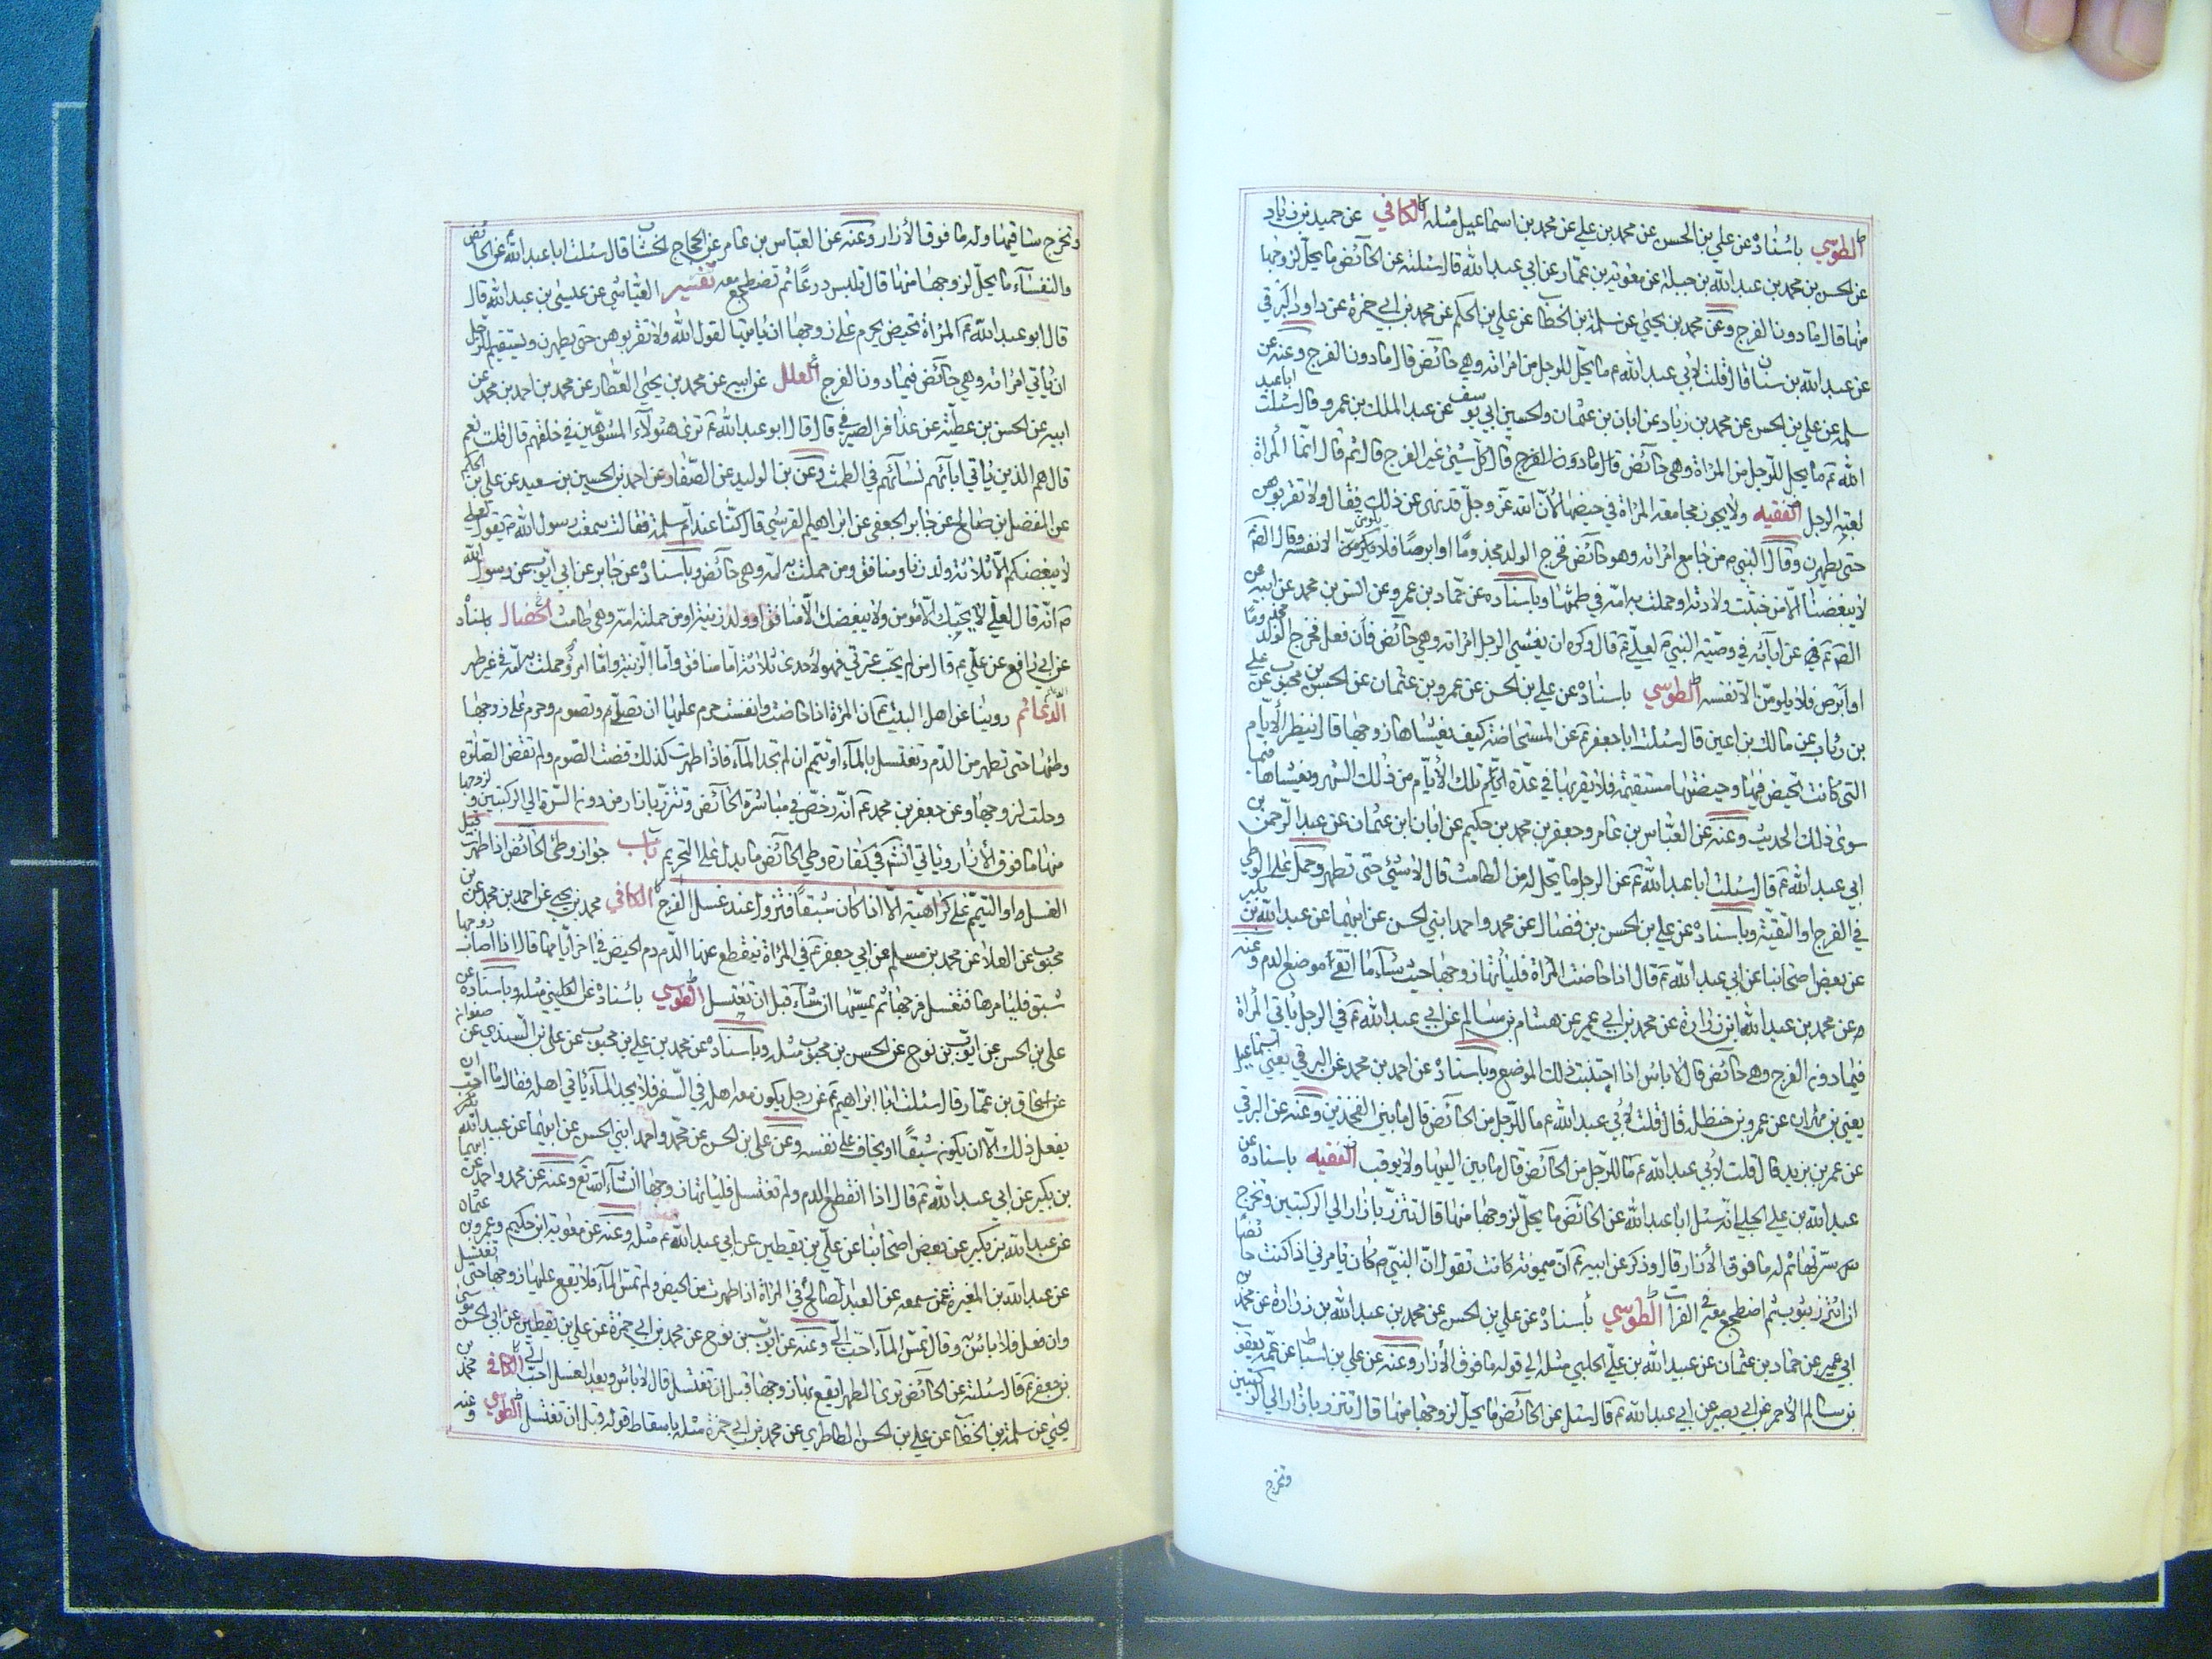 الطوسي باسناده عن علي بن الحسن عن محمد بن علي عن محمد بن اسماعيل مثله الكافي عن حميد بن زياد
عن الحسن بن محمد بن عبد الله بن جبلة عن معوية بن عمار عن ابي عبد الله قال سئلته عن الحائض ما يحل لزوجها
منها قال ما دون الفرج وعن محمد بن يحيى عن سلمة بن الخطاب عن علي بن الحكم عن محمد بن ابي حمزة عن داود الرقي
عن عبد الله بن سنان قال قلت لابي عبد الله ع ما يحل للرجل من امراته وهي حائض قال ما دون الفرج وعنه عن
سلمة عن علي بن الحسن عن محمد بن زياد عن ابان بن عثمان والحسين ابي يوسف عن عبد الملك بن عمرو قال سئلت ابا عبد
الله ع ما يحل للرجل من المراة وهي حائض قال ما دون الفرج قال كل شيئ غير الفرج قال ثم قال انما المراة
لعبة الرجل الفقيه ولا يجوز مجامعة المراة في حيضها لان الله عز وجل قد نهى عن ذلك فقال ولا تقربوهن
حتى يطهرن وقال النبي ص من جامع امراته وهو حائض فخرج الولد مجذوما او ابرصا فلا يلومن الا نفسه وقال الصم
لا يبغضنا الا من خبثت ولادته او حملت به امه في طمثها وباسناده عن حماد بن عمرو عن انس بن محمد عن ابيه عن
الصم في عن ابائه في وصية النبي ص لعلي ع قال وكره ان يغشي الرجل امراته وهي حائض فان فعل فخرج الولد مجذوما
او ابرص فلا يلومن الا نفسه الطوسي باسناده عن علي بن الحسن عن عمرو بن عثمان عن الحسن بن محبوب عن علي
بن رئاب عن مالك بن اعين قال سئلت ابا جعفر ع عن المستحاضة كيف يغشاها زوجها قال ينظر الايام
التي كانت تحيض فيها وحيضتها مستقيمة فلا يقربها في عدة تلك الايام من ذلك الشهر ويغشاها فيما
سوى ذلك الحديث وعنه عن العباس بن عامر وجعفر بن محمد بن حكيم عن ابان ابن عثمان عن عبد الرحمن بن
ابي عبد الله ع قال سئلت ابا عبد الله ع عن الرجل ما يحل له من الطامث قال لا شيئ حتى تطهر وحمل على الوطي
في الفرج او التقية وباسناده عن علي بن الحسن بن فضال عن محمد واحمد ابني الحسن عن ابيهما عن عبد الله بن بكير
عن بعض اصحابنا عن ابي عبد الله ع قال اذا حاضت المراة فليأتها زوجها حيث شاء ما اتقى موضع الدم وعنه
عن محمد بن عبد الله بن زرارة عن محمد بن ابي عمير عن هشام بن سالم عن ابي عبد الله ع في الرجل ياتي المراة
فيما دون الفرج وهي حائض قال لا باس اذا اجتنب ذلك الموضع وباسناده عن احمد بن محمد عن البرقي يعني اسماعيل
يعني بن مهران عن عمرو بن حنظلة قال قلت لابي عبد الله ع ما للرجل من الحائض قال ما بين الفخذين وعنه عن البرقي
عن عمر بن يزيد قال قلت لابي عبد الله ع ما للرجل من الحائض قال ما بين اليتيها ولا يوقب الفقيه باسناده عن
عبد الله بن علي الحلبي انه سئل ابا عبد الله عن الحائض ما يحل لزوجها منها قال تتزر بازار الى الركبتين وتخرج
سرتها ثم له ما فوق الازار قال وذكر عن ابيه ع ان ميمونة كانت تقول ان النبي ص كان يامرني اذا كنت حائضا
ان اتزر بثوب ثم اضطجع معه في الفراش الطوسي باسناده عن علي بن الحسن عن محمد بن عبد الله بن زرارة عن محمد بن
ابي عمير عن حماد بن عثمان عن عبيد الله بن علي الحلبي مثله الى قوله ما فوق الازار وعنه عن علي بن اسباط عن عمه يعقوب
بن سالم الاحمر عن ابي بصير عن ابي عبد الله ع قال سئل عن الحائض ما يحل لزوجها منها قال تتزر بازار الى الركبتين
وتخرج
وتخرج ساقيها وله ما فوق الازار وعنه عن العباس بن عامر عن الحجاج الخشاب قال سئلت ابا عبد الله ع عن الحائض
والنفساء ما يحل لزوجها منها قال تلبس درعا ثم تضطجع معه تفسير العياشي عن عيسى بن عبد الله قال
قال ابو عبد الله ع المراة تحيض يحرم على زوجها ان ياتيها لقول الله ولا تقربوهن حتى يطهرن ويستقيم الرجل
ان ياتي امراته وهي حائض فيما دون الفرج العلل عن ابيه عن محمد بن يحيى العطار عن محمد بن احمد بن محمد عن
ابيه عن الحسن بن عطية عن عذافر الصيرفي قال قال ابو عبد الله ع ترى هؤلاء المشوهين في خلقهم قال قلت نعم
قال هم الذين ياتي ابائهم نسائهم في الطمث وعن بن الوليد عن الصفار عن احمد بن الحسين بن سعيد عن علي بن الحكم
عن المفضل بن صالح عن جابر الجعفي عن ابراهيم القرشي قال كنا عند ام سلمة فقالت سمعت رسول الله ص يقول لعلي
لا يبغضكم الا ثلاثة ولد زنا ومنافق ومن حملت به امه وهي حائض وباسناده عن جابر عن ابي ايوب عن رسول الله
ص انه قال لعلي لا يحبك الا مومن ولا يبغضك الا منافق او ولد زنية او من حملته امه وهي طامث الخصال باسناده
عن ابي رافع عن علي ع قال من لم يحب عترتي فهو لاحدى ثلاثة اما منافق واما لزنية واما امرؤ حملت به امه في غير طهر
الدعائم روينا عن اهل البيت ان المراة اذا حاضت او نفست حرم عليها ان تصلي وتصوم وحرم على زوجها
وطئها حتى تطهر من الدم وتغتسل بالماء او تتيمم ان لم تجد الماء فاذا طهرت كذلك قضت الصوم ولم تقض الصلوة
وحلت لزوجها وعن جعفر بن محمد ع انه رخص في مباشرة الحائض وتتزر بازار من دون السرة الى الركبتين ولزوجها
منها ما فوق الازار وياتي انشم في كفارة وطي الحائض ما يدل على التحريم باب جواز وطي الحائض اذا طهرت قبل
الغسل او التيمم على كراهية الا اذا كان شبقا فتزول عند غسل الفرج الكافي محمد بن يحيى عن احمد بن محمد عن بن
محبوب عن العلاء عن محمد بن مسلم عن ابي جعفر ع في المراة ينقطع عنها الدم دم الحيض في اخر ايامها قال اذا اصاب زوجها
شبق فليامرها فتغسل فرجها ثم يمسها ان شاء قبل ان تغتسل الطوسي باسناده عن الكليني مثله وباسناده عن
علي بن الحسن عن ايوب بن نوح عن الحسن بن محبوب مثله وباسناده عن محمد بن علي بن محبوب عن علي بن السندي عن صفوان
عن اسحاق بن عمار قال سئلت ابا ابراهيم ع عن رجل يكون معه اهله في السفر فلا يجد الماء ياتي اهله فقال ما احب ان
يفعل ذلك الا ان يكون شبقا او يخاف على نفسه وعن علي بن الحسن عن محمد واحمد ابني الحسن عن ابيهما عن عبد الله
بن بكير عن ابي عبد الله ع قال اذا انقطع الدم ولم تغتسل فلياتها زوجها انشاء الله تع وعنه عن محمد واحمد عن ابيهما
عن عبد الله بن بكير عن بعض اصحابنا عن علي بن يقطين عن ابي عبد الله ع مثله وعنه عن معوية ابن حكيم وعمرو بن عثمان
عن عبد الله بن المغيرة عمن سمعه عن العبد الصالح في المراة اذا طهرت من الحيض ولم تمس الماء فلا يقع عليها زوجها حتى تغتسل
وان فعل فلا باس وقال تمس الماء احب الي وعنه عن ايوب بن نوح عن محمد بن ابي حمزة عن علي بن يقطين عن ابي الحسن موسى
بن جعفر ع قال سئلته عن الحائض ترى الطهر ايقع بها زوجها قبل ان تغتسل قال لا باس وبعد الغسل احب الي الكافي محمد بن
يحيى عن سلمة بن الخطاب عن علي بن الحسن الطاطري عن محمد بن ابي حمزة مثله باسقاط قوله قبل ان تغتسل الطوسي وعنه